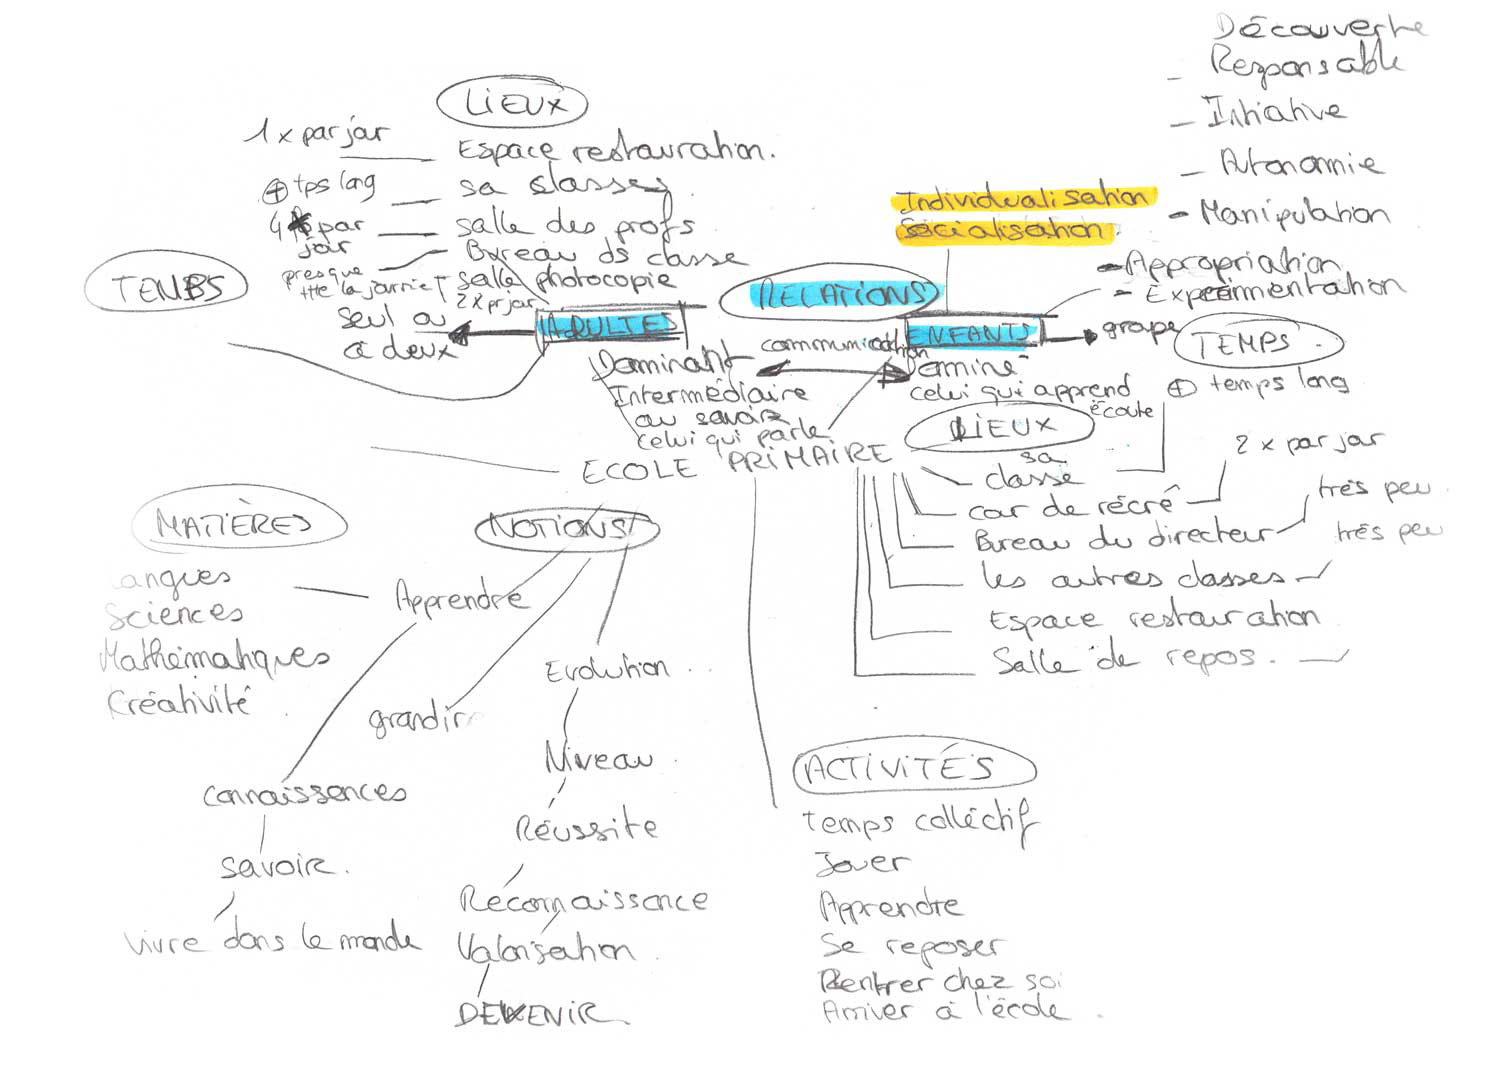 Découverte
- Responsable
- Initiative
- Autonomie
- Manipulation
- Appropriation
- Expérimentation
LIEUX
1 x par jour
Espace restauration.
⊕ tps long
sa classe
4 par jour
salle des profs
presque tte la journée
Bureau ds classe
salle photocopie
2 x pr jour
TEMPS
seul ou
à deux
ADULTES
Dominant
Intermédiaire
au savoir
celui qui parle
Individualisation
Socialisation
RELATIONS
communication
ENFANTS
groupe
Dominé
celui qui apprend
écoute
TEMPS
⊕ temps long
ECOLE PRIMAIRE
LIEUX
sa
classe
cour de récré
2 x par jour
Bureau du directeur
très peu
les autres classes
très peu
Espace restauration
Salle de repos.
MATIÈRES
Langues
Sciences
Mathématiques
Créativité
NOTIONS
Apprendre
grandir
connaissances
savoir.
vivre dans le monde
Evolution
Niveau
Réussite
Reconnaissance
Valorisation
DEVENIR
ACTIVITÉS
temps collectif
Jouer
Apprendre
Se reposer
Rentrer chez soi
Arriver à l'école.